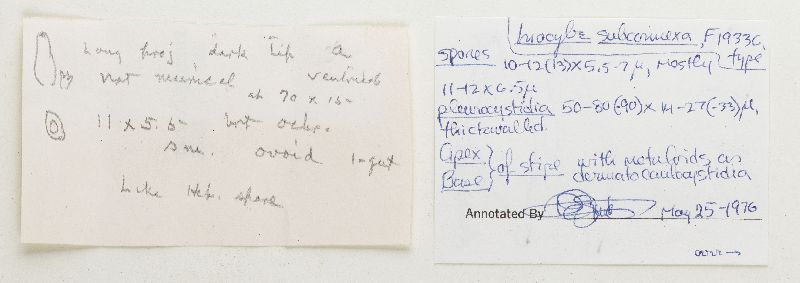 Long proj dark tip a
py not numerical ventricose
at 70 x 15-
11 x 5.5- brt ochr.
sm. ovoid 1-gut
Like Heb. spore
Inocybe subconnexa, F19336,
spores 10-12(13)x5.5-7µ, mostly type
11-12x6.5µ
pleurocystidia 50-80(-90)x14-27(-33)µ,
thickwalled.
Apex
Base } of stipe with metuloids as
dermatocaulocystidia
Annotated By May 25-1976
over→